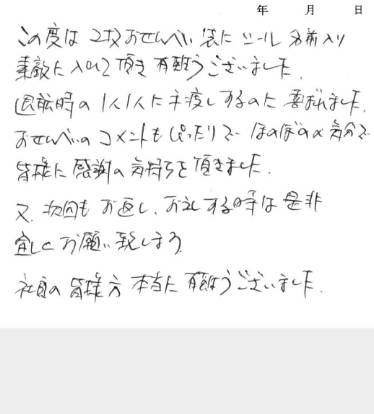 年 月 日
この度は 2枚おせんべい 袋に シール 名前入り
素敵に入れて頂き有難うございました。
退職時の1人1人に手渡しするのに喜ばれました。
おせんべいのコメントもぴったりで ほのぼのの気分で
皆様に感謝の気持ちを頂きました。
又、次回も お返し、お礼する時は是非
宜しくお願い致します。
社員の皆様方 本当に有難うございました。